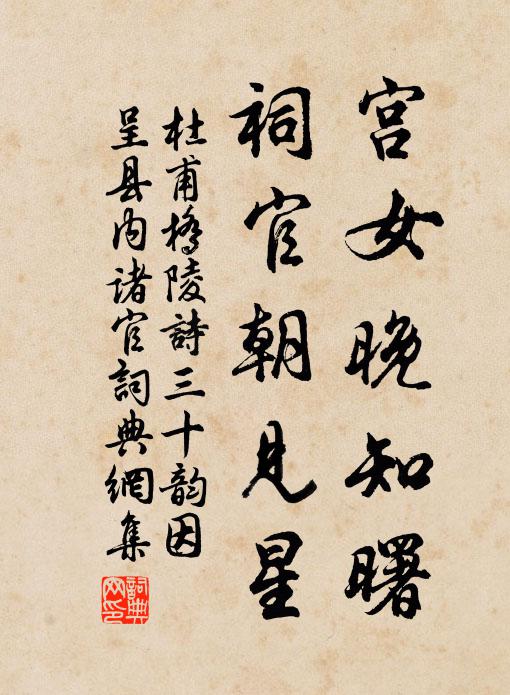 宫女晚知曙
祠官朝見星
杜甫橋陵詩三十韵因
呈县内诸官詞典網集
詞典網印